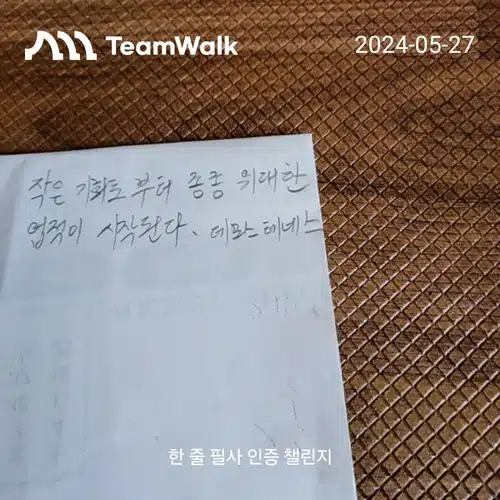 TeamWalk
2024-05-27
작은 기회로 부터 종종 위대한
업적이 시작된다. 데모스테네스
한 줄 필사 인증 챌린지